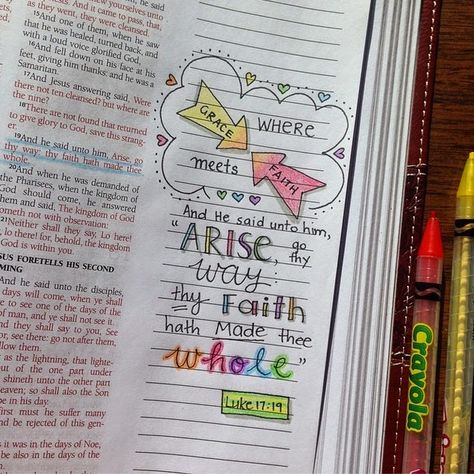 he said
shew yourselves unto
s. And it came to pass, that,
as they went, they were cleansed.
15 And one of them, when he saw
that he was healed, turned back, and
with a loud voice glorified God,
16 And fell down on his face at his
feet, giving him thanks: and he was a
Samaritan.
17 And Jesus answering said, Were
there not ten cleansed? but where are
the nine?
18 There are not found that returned
to give glory to God, save this strang-
er.
19 And he said unto him, Arise, go
thy way: thy faith hath made thee
whole.
20 And when he was demanded of
the Pharisees, when the kingdom of
God should come, he answered
them and said, The kingdom of God
cometh not with observation:
21 Neither shall they say, Lo here!
or, lo there! for, behold, the kingdom
of God is within you.
SUS FORETELLS HIS SECOND
MING
And he said unto the disciples,
days will come, when ye shall
e to see one of the days of the
of man, and ye shall not see it.
nd they shall say to you, See
or, see there: go not after them,
llow them.
r as the lightning, that lighte-
out of the one part under
shineth unto the other part
eaven; so shall also the Son
be in his day.
irst must he suffer many
and be rejected of this gen-
s it was in the days of Noe,
be also in the days of the
GRACE
WHERE
meets
FAITH
And He said unto him,
"ARISE, go
thy
way:
thy Faith
hath Made thee
whole"
Luke 17:19
Crayola